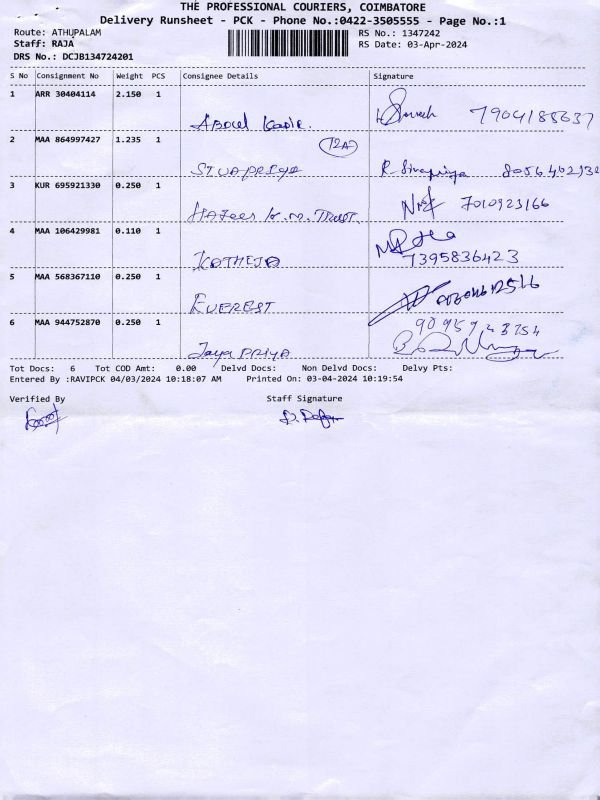 THE PROFESSIONAL COURIERS, COIMBATORE
Delivery Runsheet - PCK - Phone No.:0422-3505555 - Page No.:1
Route: ATHUPALAM RS No.: 1347242
Staff: RAJA RS Date: 03-Apr-2024
DRS No.: DCJB134724201
S No Consignment No Weight PCS Consignee Details Signature
1 ARR 30404114 2.150 1
Abdul Kadir. Suresh 7904188637
2 MAA 864997427 1.235 1 12A
SIVAPRIYA R Sivapriya 8056402132
3 KUR 695921330 0.250 1
HAFees K.M. TRUST. 7010923166
4 MAA 106429981 0.110 1
KATHEJA 7395836423
5 MAA 568367110 0.250 1
EVEREST
6 MAA 944752870 0.250 1
Jaya PRIYA
Tot Docs: 6 Tot COD Amt: 0.00 Delvd Docs: Non Delvd Docs: Delvy Pts:
Entered By :RAVIPCK 04/03/2024 10:18:07 AM Printed On: 03-04-2024 10:19:54
Verified By Staff Signature